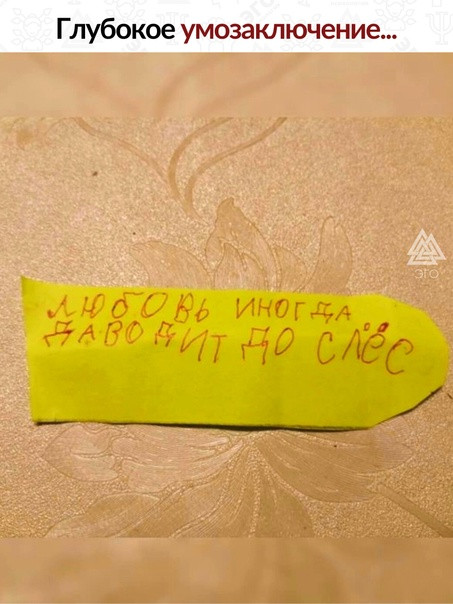 Глубокое умозаключение...
ЭГО
ЛЮБОВЬ ИНОГДА
ДАВОДИТ ДО СЛЁС